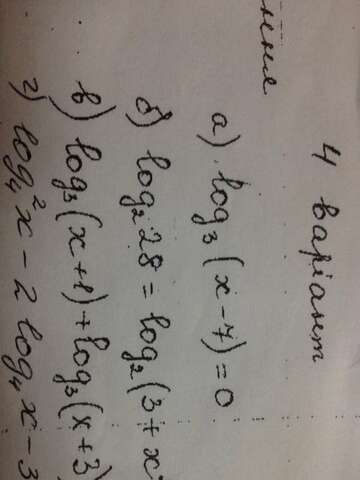 4 варіант
а) log₃(x-7)=0
б) log₂28=log₂(3+x
в) log₃(x+1)+log₃(x+3)
г) log₄²x-2log₄x-3